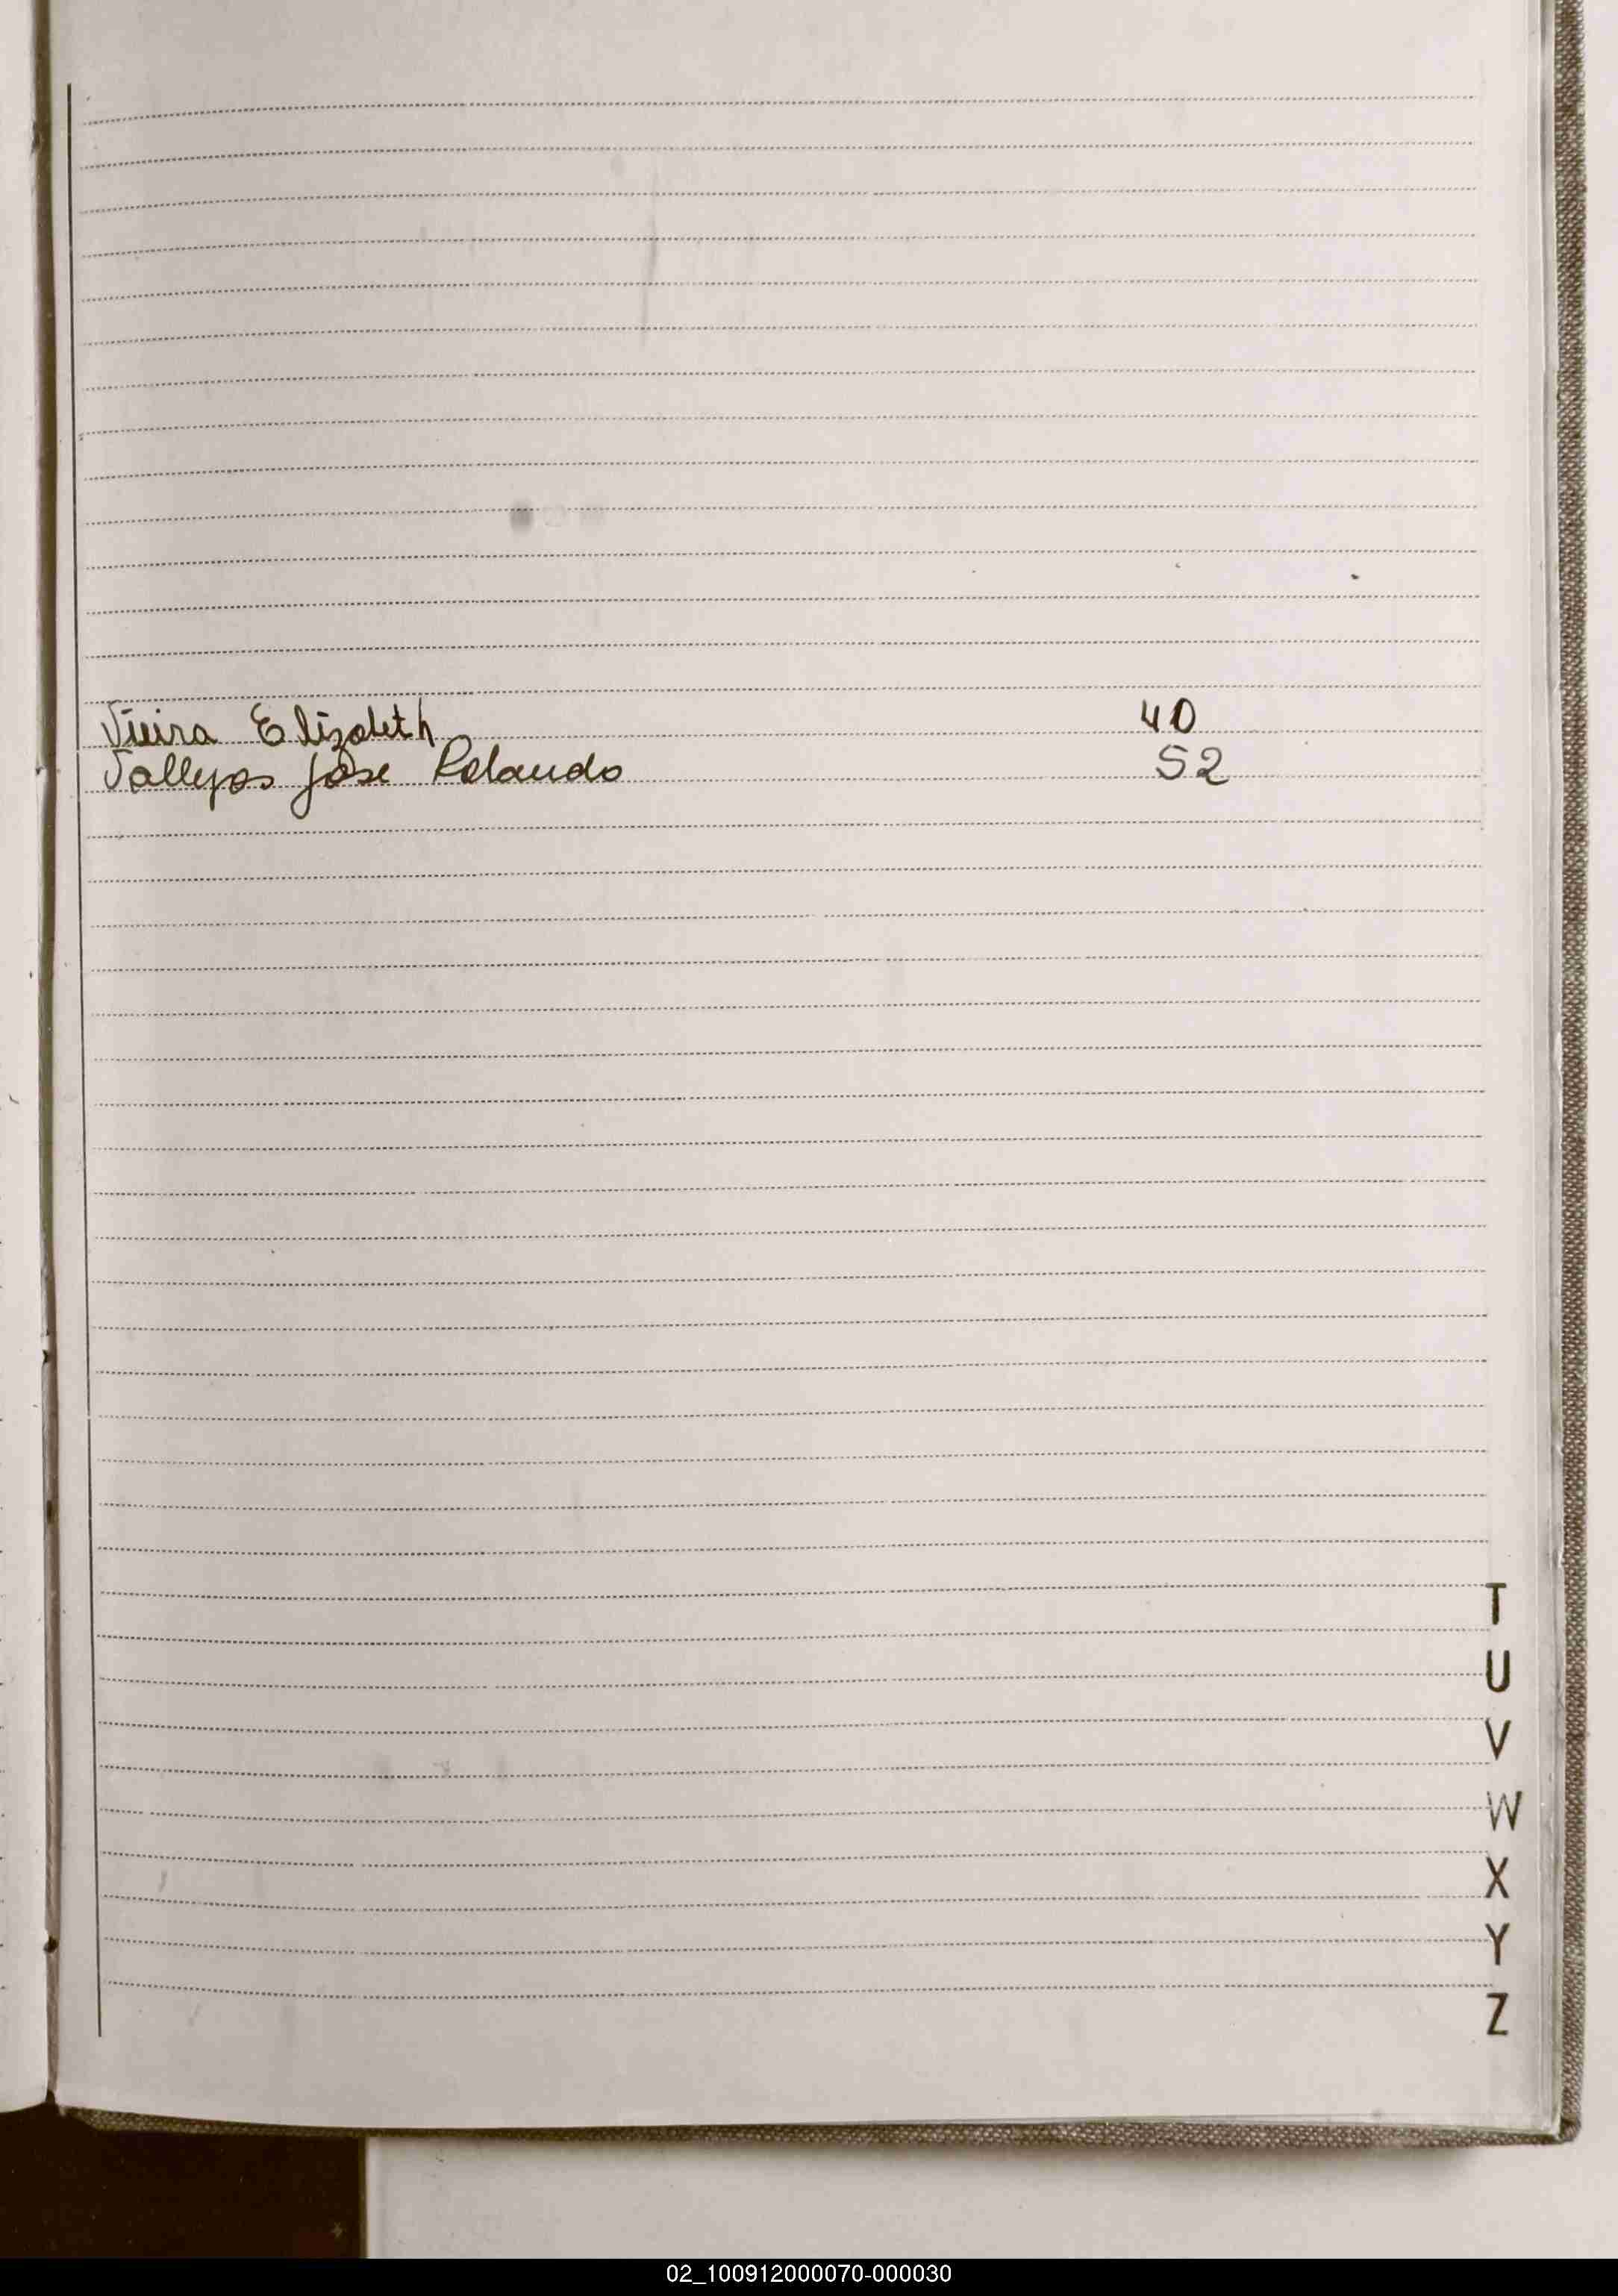 Vieira Elizabeth 40
Vallejos Jose Rolando 52
T
U
V
W
X
Y
Z
02_100912000070-000030